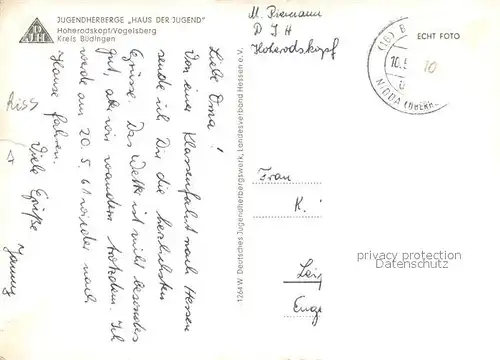 JUGENDHERBERGE „HAUS DER JUGEND"
Hoherodskopf/Vogelsberg
Kreis Büdingen
DJH
Riss
Liebe Oma!
Von einer Klassenfahrt nach Hessen
sende ich Dir die herzlichsten
Grüsse. Das Wetter ist nicht besonders
gut, aber wir wandern trotzdem. Ich
werde am 20.5.61 wieder nach
Hause fahren.
Viele Grüße
1264 W Deutsches Jugendherbergswerk, Landesverband Hessen e. V.
M.
D J H
Hoherodskopf
ECHT FOTO
(16) B
10.5
NIDDA (OBERH
10
Frau
K.
Leip
Enge
privacy protection
Datenschutz